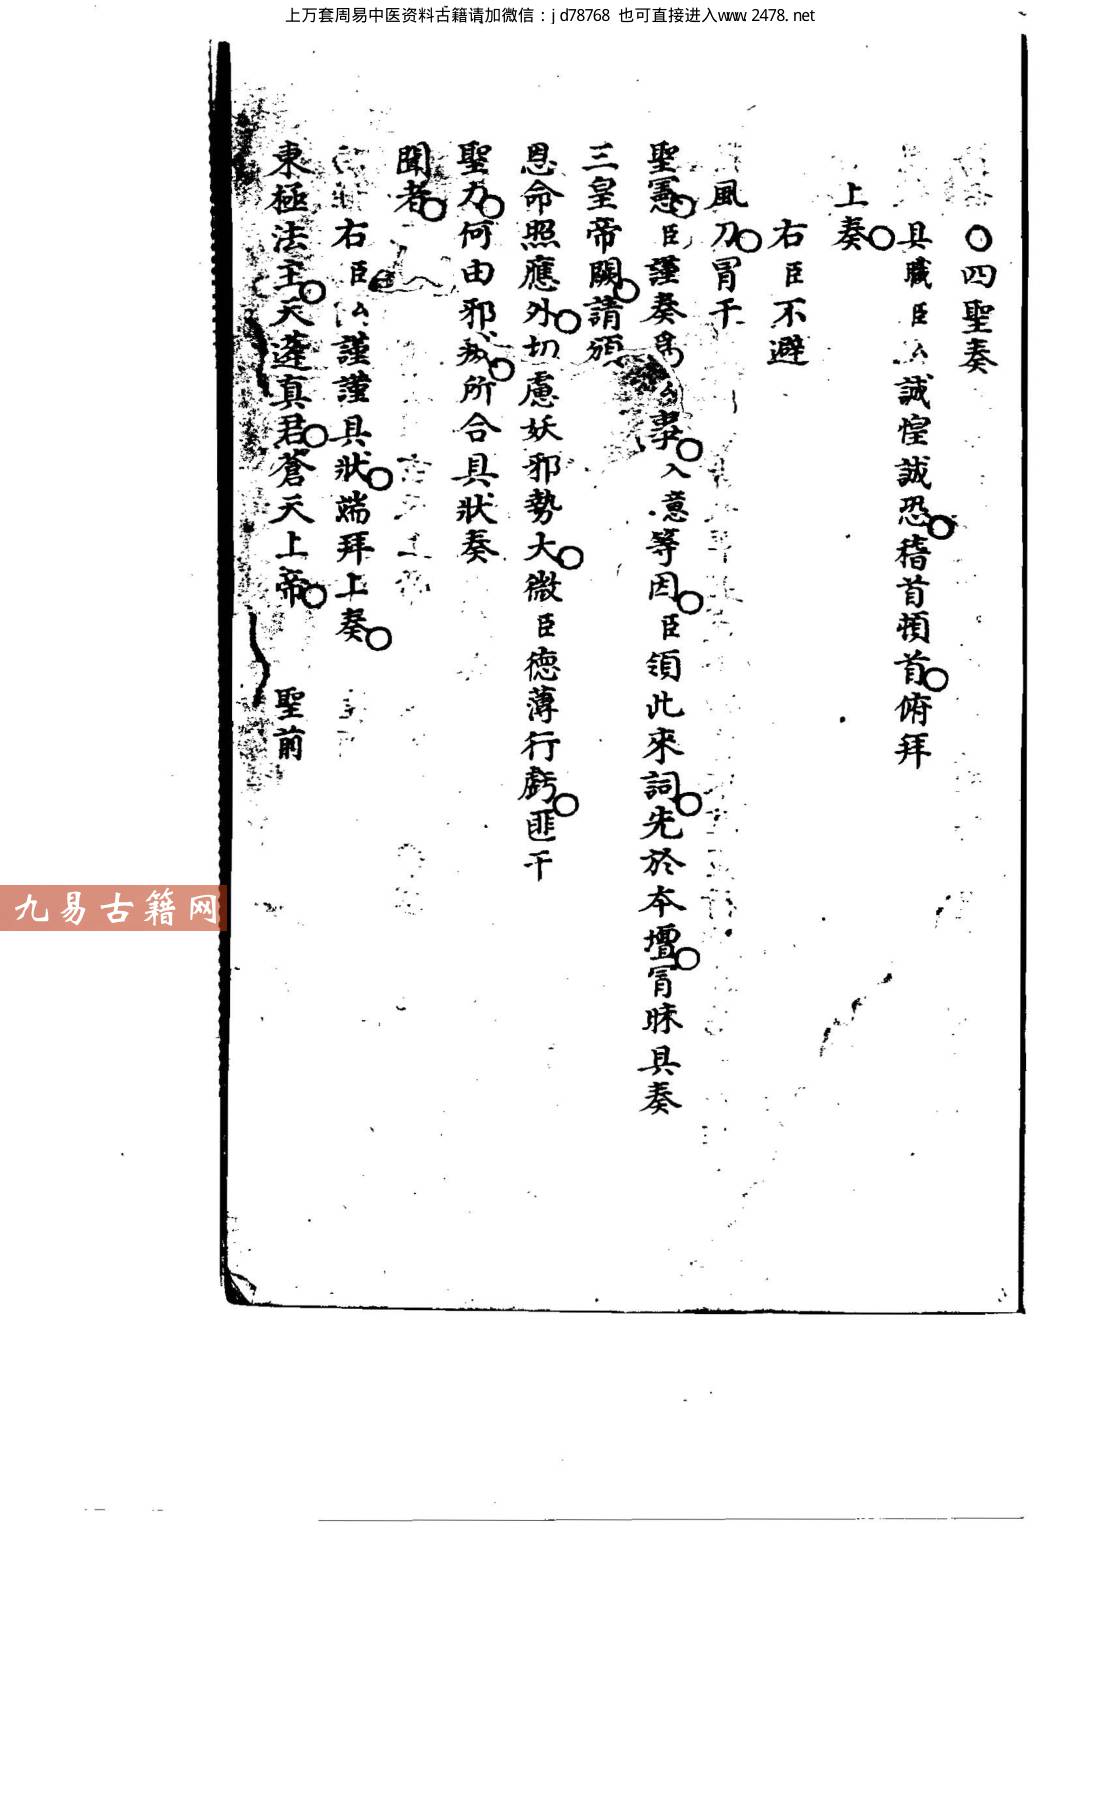 上万套周易中医资料古籍请加微信：jd78768 也可直接进入www.2478.net
○四聖奏
具職臣厶誠惶誠恐稽首頓首俯拜
上奏
右臣不避
風刀冒干
聖憲臣謹奏為厶事入意等因臣領此來詞先於本壇冐昧具奏
三皇帝闕請頒
恩命照應外切慮妖邪勢大微臣德薄行虧匪干
聖力何由邪所合具狀奏
聞者
右臣厶謹謹具狀端拜上奏
東極法主天蓬真君蒼天上帝 聖前
九易古籍网